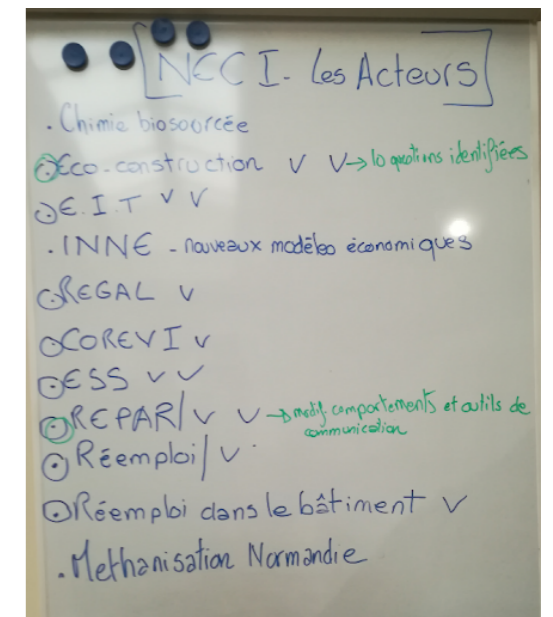 [NECI - Les Acteurs]
. Chimie biosourcée
⊙ Eco-construction V V → 10 questions identifiées
⊙ E.I.T V V
. INNE - nouveaux modèles économiques
⊙ REGAL V
⊙ COREVI V
⊙ ESS V V
⊙ REPAR/ V V → modif comportements et outils de
communication
⊙ Réemploi/ V
⊙ Réemploi dans le bâtiment V
. Methanisation Normandie